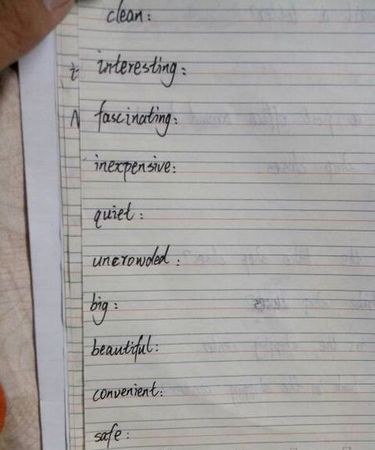 clean:
interesting:
fascinating:
inexpensive:
quiet:
uncrowded:
big:
beautiful:
convenient:
safe: